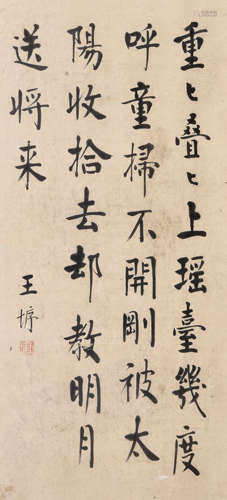 重々叠々上瑶臺幾度
呼童掃不開剛被太
陽收拾去却教明月
送将来
王㙣